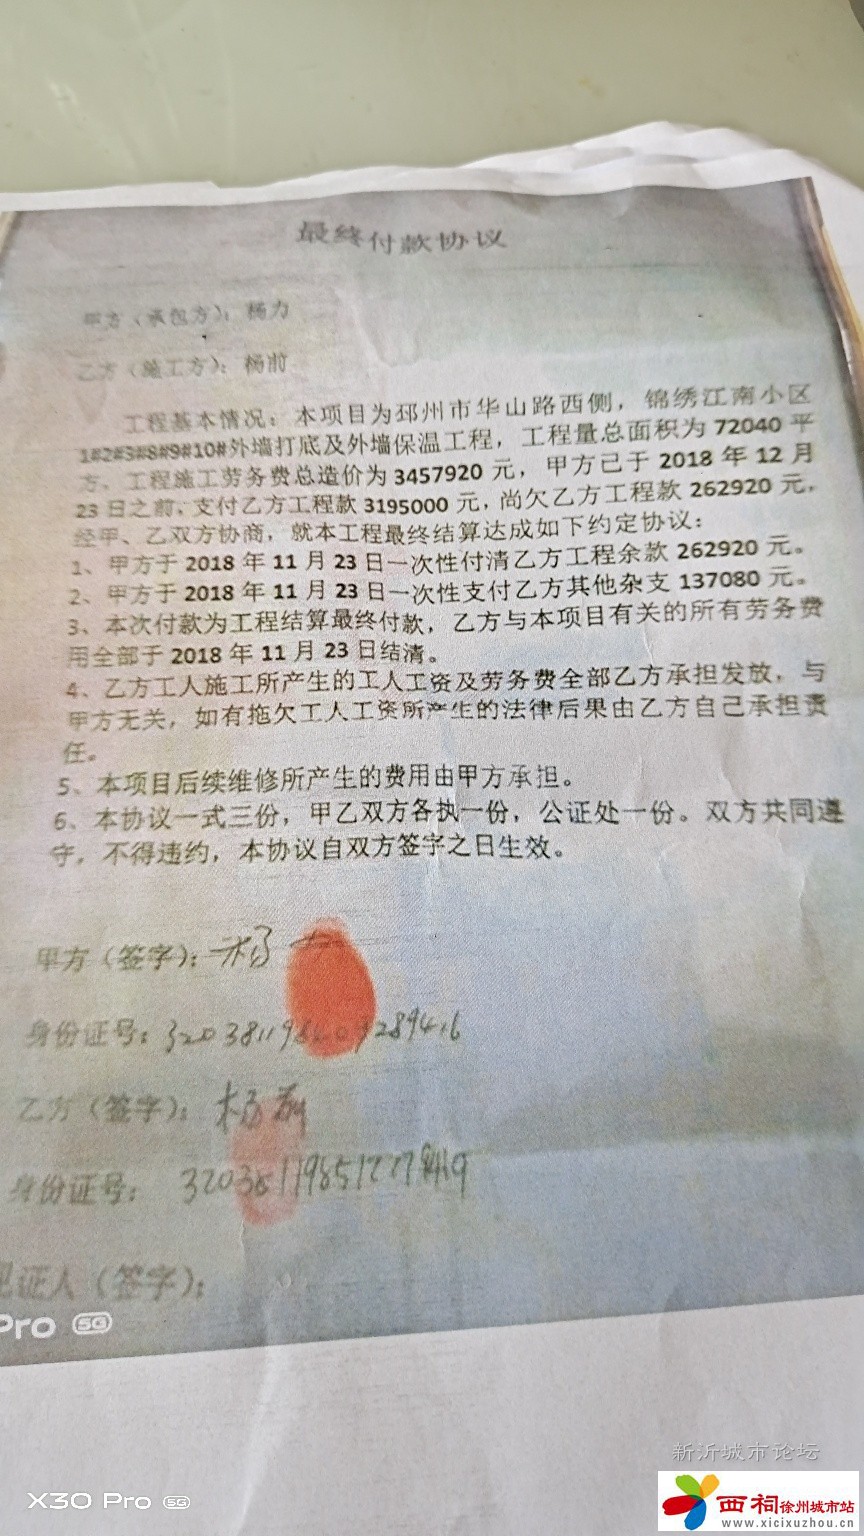 最终付款协议
甲方（承包方）：杨力
乙方（施工方）：杨前
工程基本情况：本项目为邳州市华山路西侧，锦绣江南小区
1#2#3#8#9#10#外墙打底及外墙保温工程，工程量总面积为 72040 平
方、工程施工劳务费总造价为 3457920 元，甲方已于 2018 年 12 月
23 日之前，支付乙方工程款 3195000 元，尚欠乙方工程款 262920 元，
经甲、乙双方协商，就本工程最终结算达成如下约定协议：
1、甲方于 2018 年 11 月 23 日一次性付清乙方工程余款 262920 元。
2、甲方于 2018 年 11 月 23 日一次性支付乙方其他杂支 137080 元。
3、本次付款为工程结算最终付款，乙方与本项目有关的所有劳务费
用全部于 2018 年 11 月 23 日结清。
4、乙方工人施工所产生的工人工资及劳务费全部乙方承担发放，与
甲方无关，如有拖欠工人工资所产生的法律后果由乙方自己承担责
任。
5、本项目后续维修所产生的费用由甲方承担。
6、本协议一式三份，甲乙双方各执一份，公证处一份。双方共同遵
守，不得违约，本协议自双方签字之日生效。
甲方（签字）：杨
身份证号：
乙方（签字）：杨前
身份证号：
见证人（签字）：
Pro 5G
新沂城市论坛
X30 Pro 5G
西祠徐州城市站
www.xicixuzhou.cn